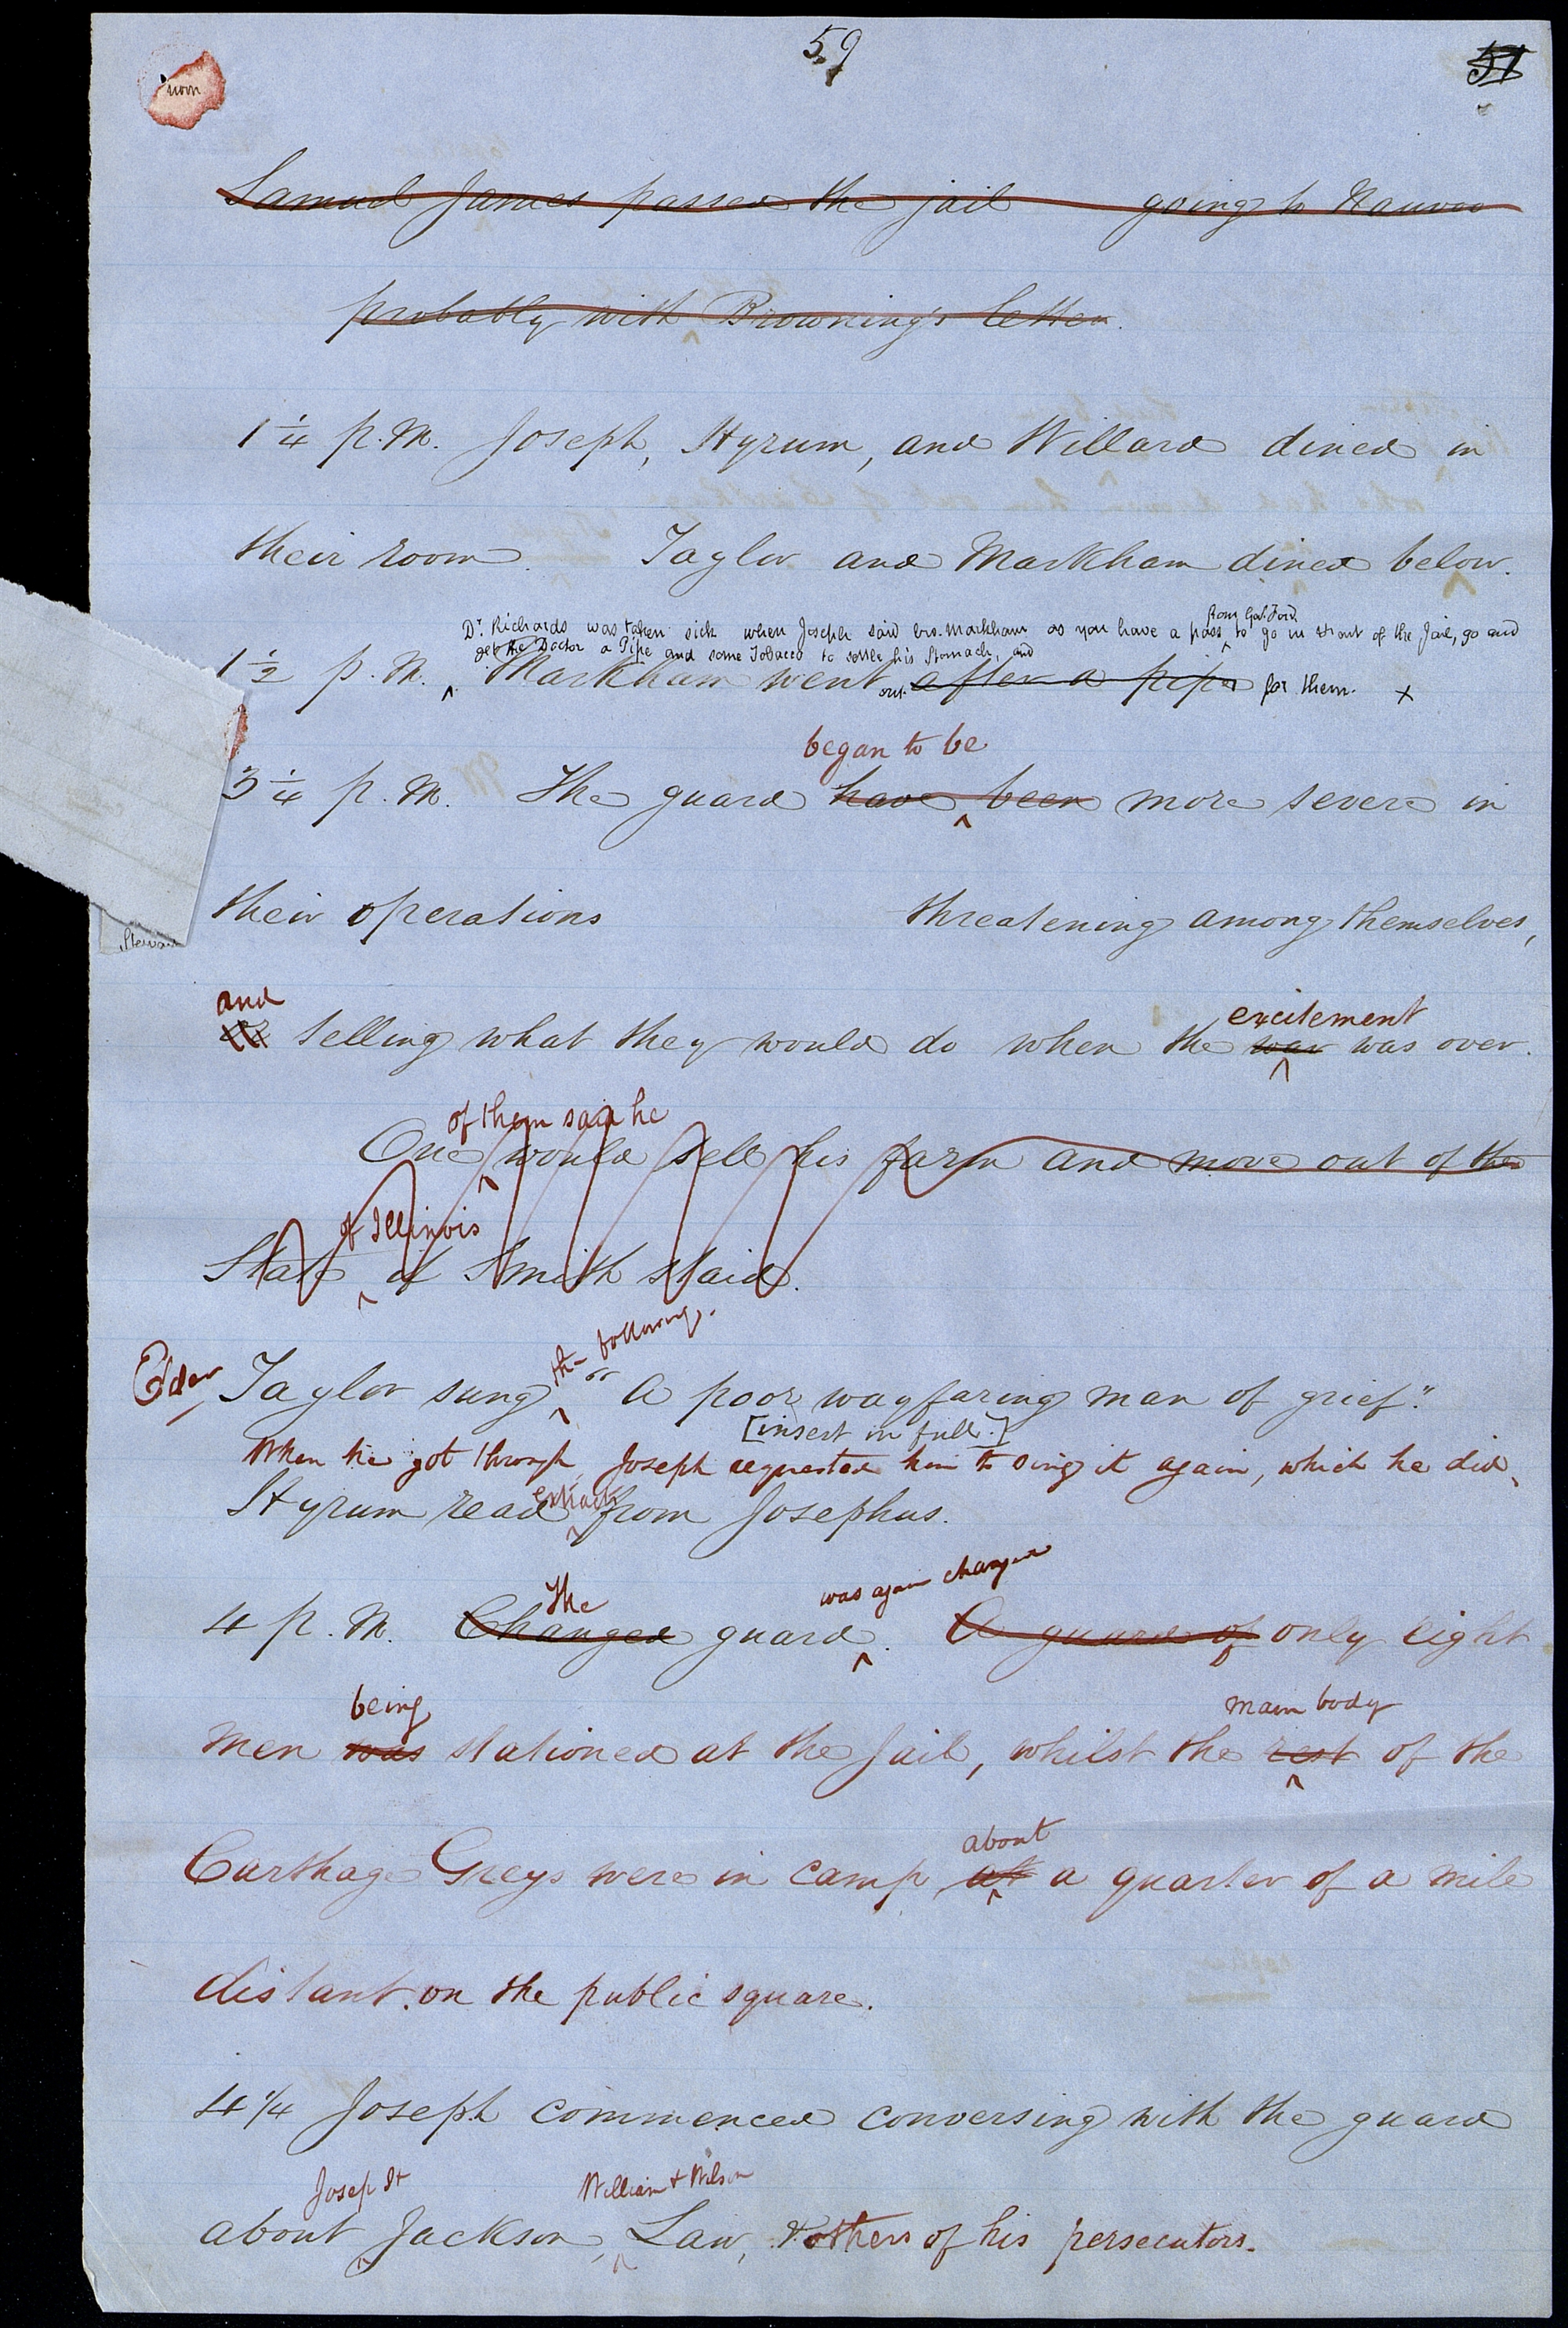 59
51
noon
Samuel James passed the jail going to Nauvoo
probably with Browning's letter.
1 1/4 p.m. Joseph, Hyrum, and Willard dined in
their room. Taylor and Markham dined below.
from Gov. Ford
Dr. Richards was taken sick when Joseph said bro. Markham as you have a pass to go in & out of the Jail, go and
get the Doctor a Pipe and some Tobacco to settle his Stomach, and
1 1/2 p.m. ^ Markham went out after a pipe for them. x
began to be
3 1/4 p.m. The guard have ^ been more severe in
their operations threatening among themselves,
and
telling what they would do when the war was over.
excitement
of them said he
One would sell his farm and move out of the
of Illinois
State ^ if Smith staid.
the following.
Elder Taylor sung ^ "A poor wayfaring man of grief."
[insert in full.]
When he got through, Joseph requested him to sing it again, which he did.
extracts
Hyrum read ^ from Josephus.
The was again changed
4 p.m. Changed guard ^. A guard of only eight
being main body
men was stationed at the jail, whilst the rest ^ of the
about
Carthage Greys were in camp at ^ a quarter of a mile
distant. on the public square.
4 1/4 Joseph commenced conversing with the guard
Joseph H William & Wilson
about ^ Jackson, ^ Law, & others of his persecutors.